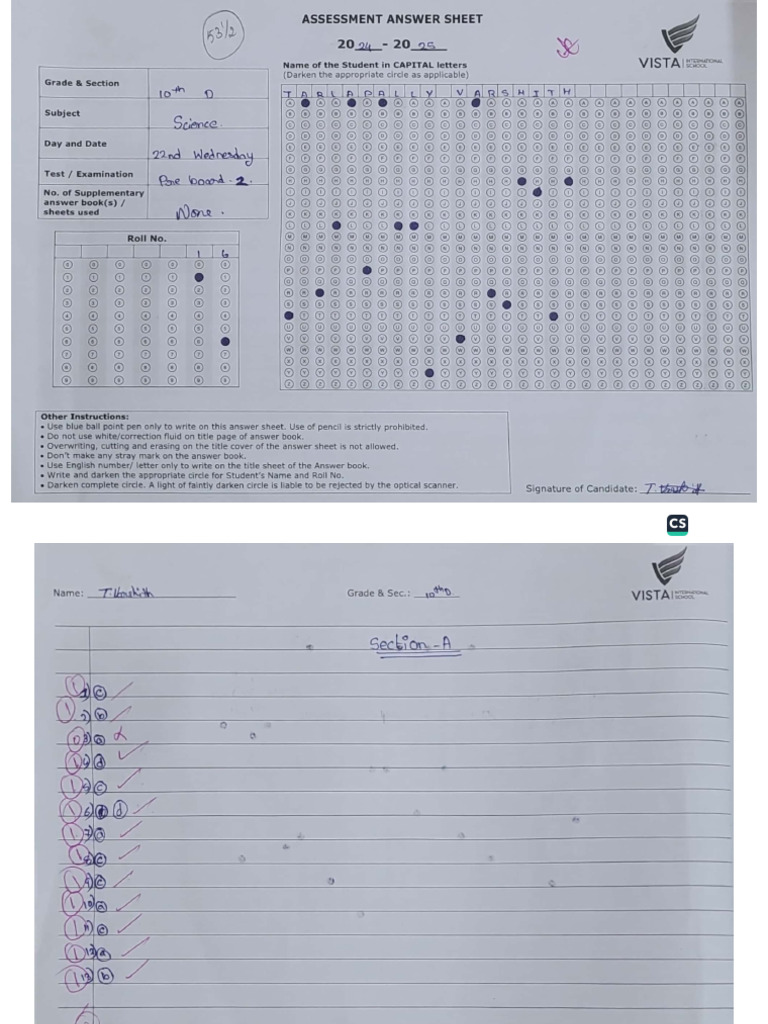 53 1/2
ASSESSMENT ANSWER SHEET
2024 - 2025
Name of the Student in CAPITAL letters
(Darken the appropriate circle as applicable)
VISTA INTERNATIONAL SCHOOL
TARLAPALLY VARSHITH
Grade & Section 10th D
Subject Science.
Day and Date 22nd Wednesday
Test / Examination Pre board - 2.
No. of Supplementary answer book(s) / sheets used None.
Roll No.
1 6
Other Instructions:
• Use blue ball point pen only to write on this answer sheet. Use of pencil is strictly prohibited.
• Do not use white/correction fluid on title page of answer book.
• Overwriting, cutting and erasing on the title cover of the answer sheet is not allowed.
• Don't make any stray mark on the answer book.
• Use English number/ letter only to write on the title sheet of the Answer book.
• Write and darken the appropriate circle for Student's Name and Roll No.
• Darken complete circle. A light of faintly darken circle is liable to be rejected by the optical scanner.
Signature of Candidate: T.
CS
Name: T.Varshith
Grade & Sec.: 10th D
VISTA INTERNATIONAL SCHOOL
Section -A
1 1) c
1 2) b
0 3) a
1 4) d
1 5) c
1 6) d
1 7) a
1 8) c
1 9) c
1 10) a
1 11) c
1 12) a
1 13) b